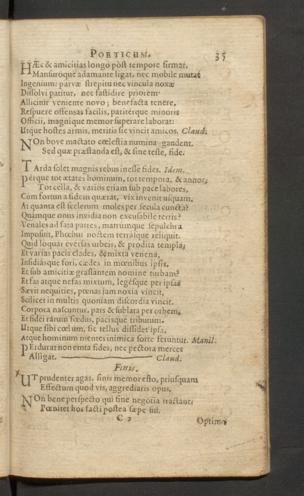 PORTICUM. 35
HÆc & amicitias longo pòst tempore firmat,
Mansuròque adamante ligat, nec mobile mutat
Ingenium: parvæ strepitu nec vincula noxæ
Dissolvi patitur, nec fastidire priorem
Allicitur veniente novo; benefacta tenere,
Respuere offensas facilis, patiterque minoris
Officii, magnique memor superare laborat:
Utque hostes armis, meritis sic vincit amicos. Claud.
NOn bove mactato cœlestia numina gaudent.
Sed quæ præstanda est, & sine teste, fide.
TArda solet magnis rebus inesse fides. Idem.
Perque tot ætates hominum, tot tempora, & annos,
Tot cella, & varios etiam sub pace labores,
Cum fortuna fidem quærat, vix invenit usquam.
At quanta est scelerum moles per secula cuncta?
Quamque onus invidiæ non excusabile terris?
Venales ad fata patres, matrumque sepulchra
Imposuit, Phœbus noctem terræque reliquit.
Quid loquar eversas urbeis, & prodita templa,
Et varias pacis clades, & mixta venena,
Insidiasque fori, cædes in mœnibus ipsis,
Et sub amicitiæ grassantem nomine turbam?
Et fas atque nefas mixtum, legésque per ipsas
Sævit nequities, pœnas jam noxia vincit,
Scilicet in multis quoniam discordia vincit.
Corpora nascuntur, pars & sublata per orbem,
Et fidei rarum fœdus, pacisque tributum.
Utque sibi cœlum, sic tellus dissidet ipsa,
Atque hominum mentes inimica sorte feruntur. Manil.
PErdurat non emta fides, nec pectora merces
Alligat. Claud.
Finis.
UT prudenter agas, finis memor esto, priusquam
Effectum quod vis, aggrediaris opus.
NOn bene perspecto qui fine negotia tractant,
Pœnitet hos facti postea sæpe sui.
C 2 Optima